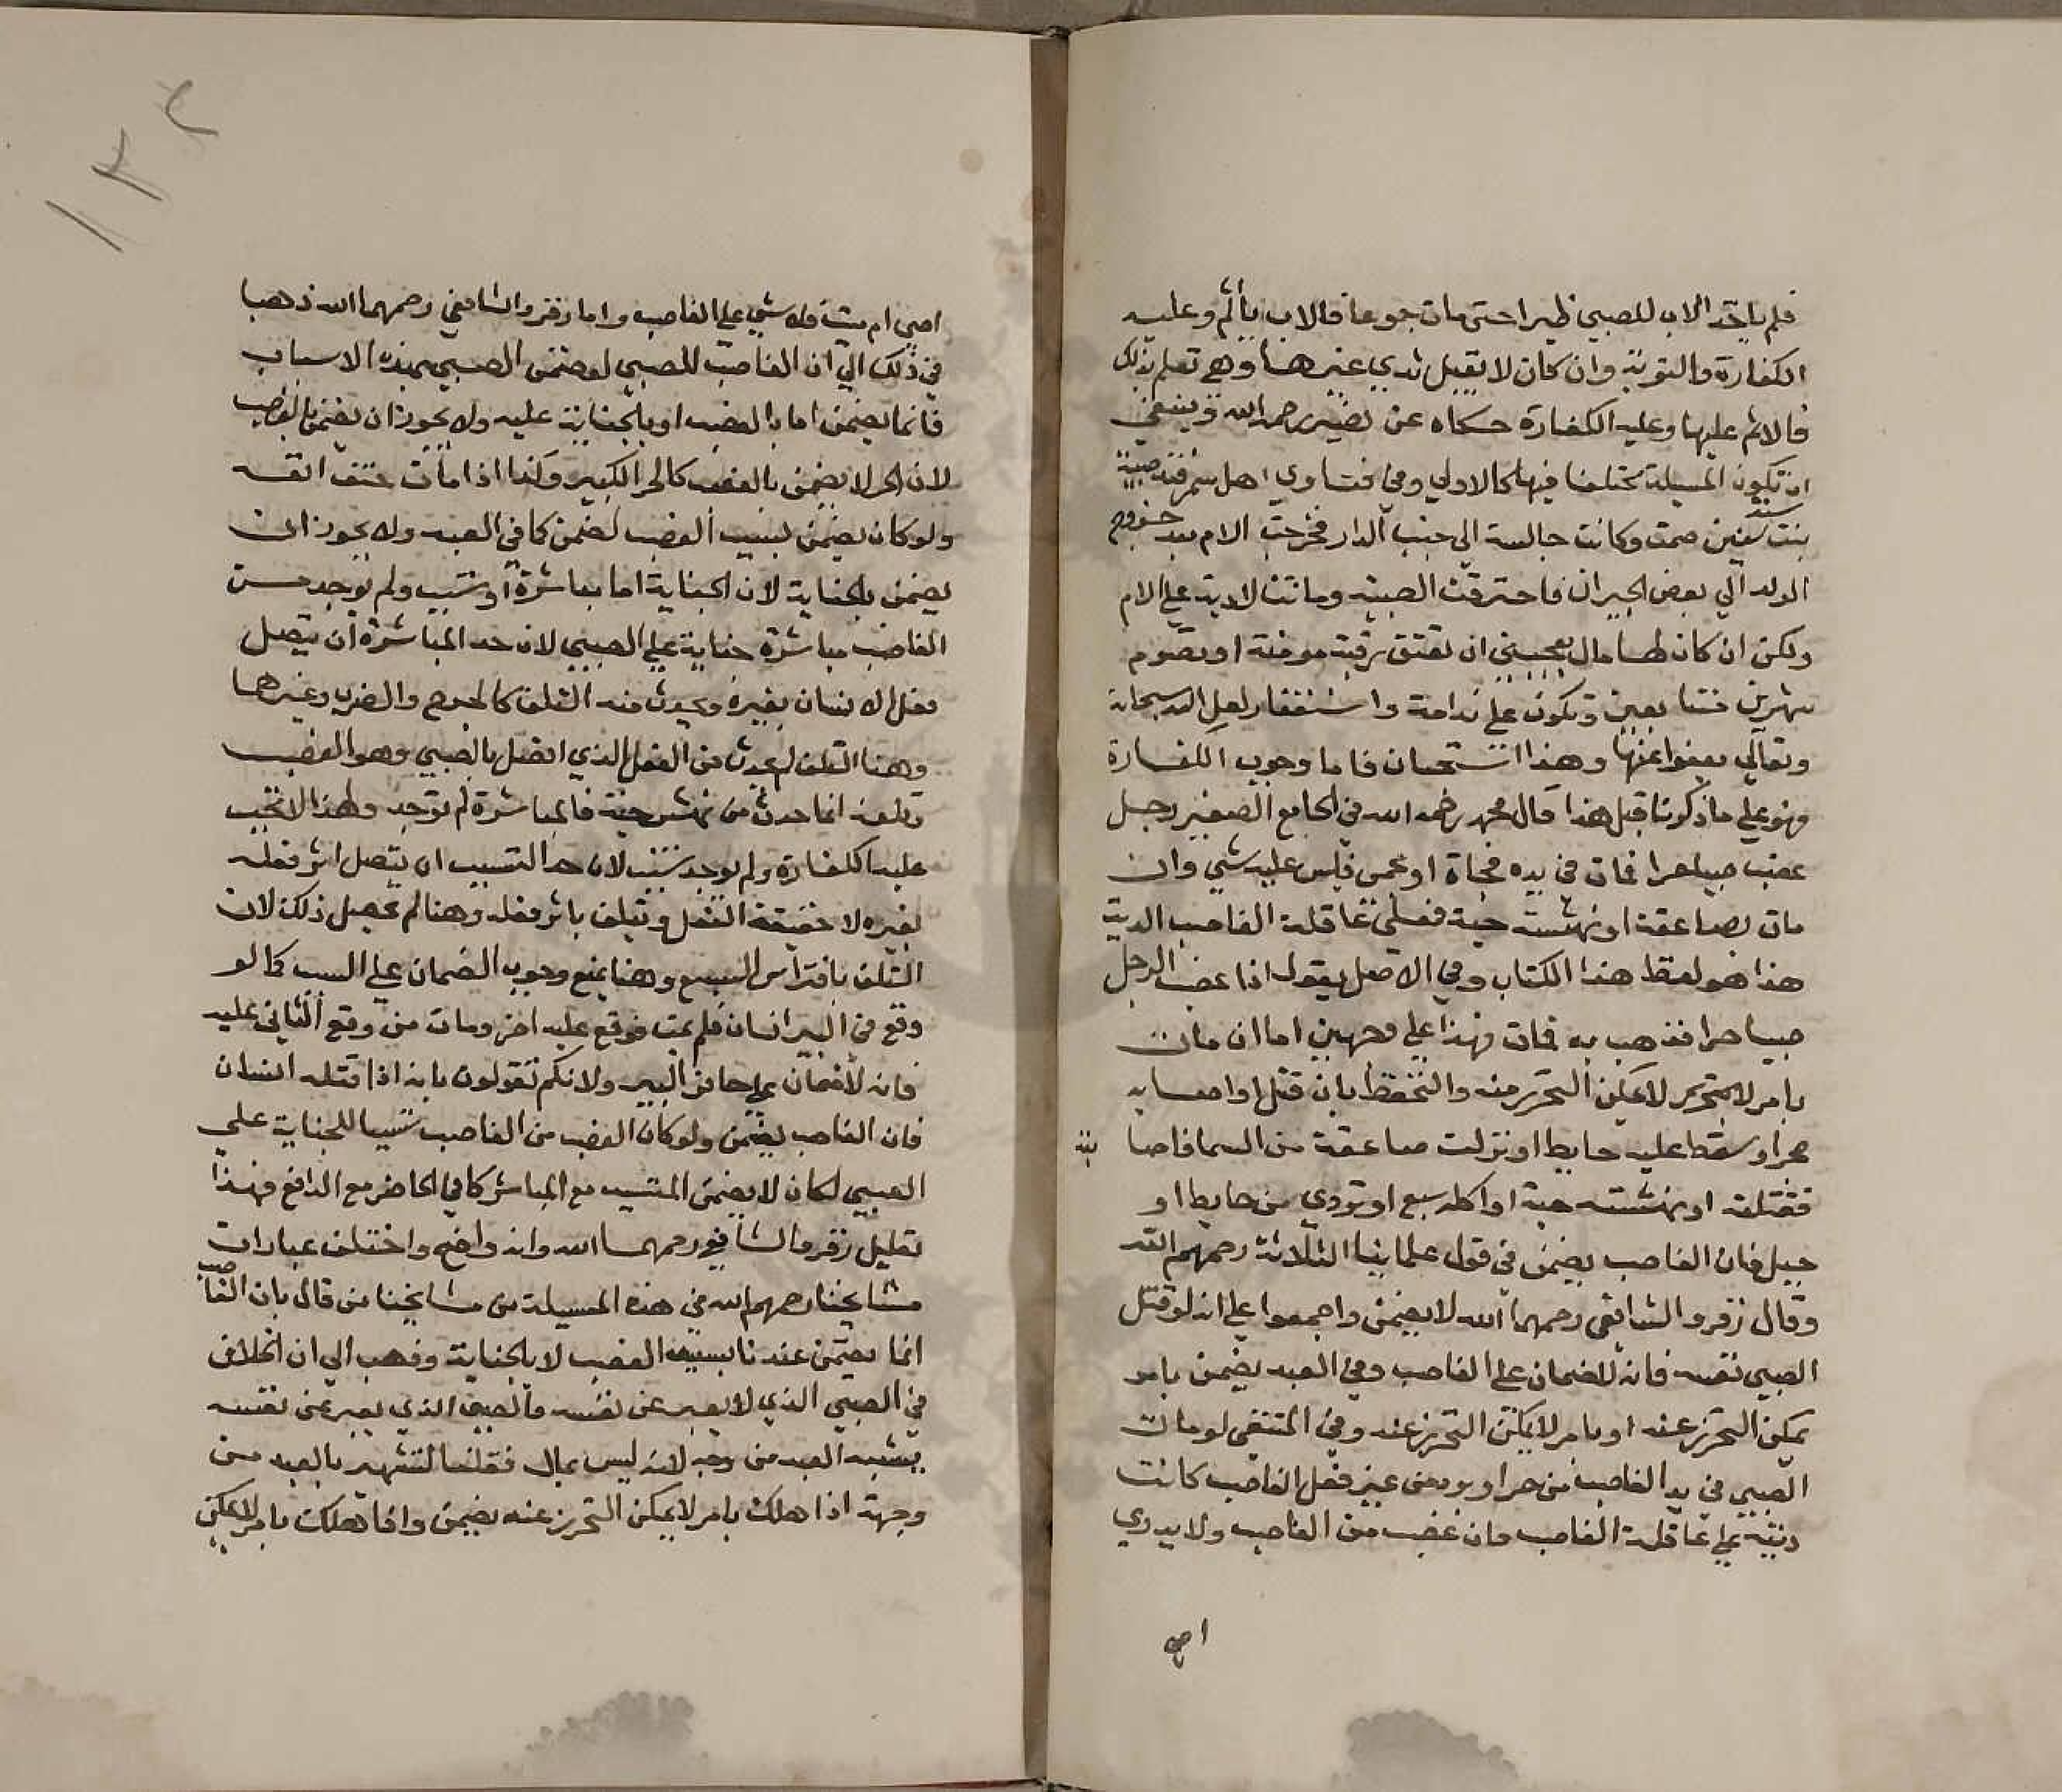 فلم ياخذ الاب للصبي ظيرا حتى مات جوعا فالاب يأثم وعليه
الكفارة والتوبة وان كان لا يقبل ثدي غيرها وهي تعلم بذلك
فالاثم عليها وعليه الكفارة حكاه عن نصير رحمه الله وينبغي
ان تكون المسيلة مختلفا فيها كالاولي وفي فتاوي اهل سمرقند صبية
بنت سنتين صمت وكانت جالسة الي جنب الدار فخرجت الام بعد خروج
الولد الي بعض الجيران فاحترقت الصبية وماتت لا دية علي الام
ولكن ان كان لها مال يعجبني ان تعتق رقبة مومنة او تصوم
شهرين متتابعين وتكون علي ندامة واستغفار لعل الله سبحانه
وتعالي يعفوا عنها وهذا استحسان فاما وجوب الكفارة
فهو علي ما ذكرنا قبل هذا قال محمد رحمه الله في الجامع الصغير رجل
غصب صبيا حرا فمات في يده فجاة او بحمى فليس عليه شي وان
مات بصاعقة او نهشته حية فعلى عاقلة الغاصب الدية
هذا هو لفظ هذا الكتاب وفي الاصل يقول اذا غصب الرجل
صبيا حرا فذهب به فمات فهذا علي وجهين اما ان مات
بامر لا يمكن التحرز منه والتحفظ بان قتل او اصابه
حجر او سقط عليه حايط او نزلت صاعقة من السما فاصا بته
فقتلته او نهشته حية او اكله سبع او تردي من حايط او
جبل فان الغاصب يضمن في قول علماينا الثلاثة رحمهم الله
وقال زفر والشافعي رحمهما الله لا يضمن واجمعوا علي انه لو قتل
الصبي نفسه فانه لا ضمان علي الغاصب وفي العبد يضمن بامر
يمكن التحرز عنه او بامر لا يمكن التحرز عنه وفي المنتقي لو مات
الصبي في يد الغاصب من حر او برد من غير فعل الغاصب كانت
ديته علي عاقلة الغاصب وان غصب من الغاصب ولا يدري
احي
١٣٢
احي ام ميت فلا شي علي الغاصب واما زفر والشافعي رحمهما الله ذهبا
في ذلك الي ان الغاصب للصبي لو ضمن الصبي بهذه الاسباب
فانما يضمن اما بالغصب او بالجناية عليه ولا يجوز ان يضمن بالغصب
لان الحر لا يضمن بالغصب كالحر الكبير وكذا اذا مات حتف انفه
ولو كان يضمن بسبب الغصب لضمن كما في العبد ولا يجوز ان
يضمن بالجناية لان الجناية اما مباشرة او تسبيب ولم يوجد من
الغاصب مباشرة جناية علي الصبي لان حد المباشرة ان يتصل
فعل الانسان بغيره ويحدث منه التلف كالجرح والضرب وغيرهما
وهنا التلف لم يحدث من الفعل الذي اتصل بالصبي وهو الغصب
وتلفه انما حدث من نهش حية فالمباشرة لم توجد ولهذا لا تجب
عليه الكفارة ولم يوجد تسبب لان حد التسبيب ان يتصل اثر فعله
بغيره لا حقيقة الفعل ويتلف باثر فعله وهنا لم يحصل ذلك لان
التلف بافتراس السبع وهنا يمنع وجوب الضمان علي السبب كما لو
وقع في البير انسان فلم يمت فوقع عليه اخر ومات من وقع الثاني عليه
فانه لا ضمان علي حافر البير ولانكم تقولون بانه اذا قتله انسان
فان الغاصب يضمن ولو كان الغصب من الغاصب تسبيبا للجناية علي
الصبي لكان لا يضمن المتسبب مع المباشر كما في الحافر مع الدافع فهذا
تعليل زفر والشافعي رحمهما الله وانه واضح واختلف عبارات
مشايخنا رحمهم الله في هذه المسيلة من مشايخنا من قال بان الغاصب
انما يضمن عندنا بسبب الغصب لا بالجناية وذهب الي ان الخلاف
في الصبي الذي لا يعبر عن نفسه فالصبي الذي يعبر عن نفسه
يشبه العبد من وجه لانه ليس بمال فقلنا لشبهه بالعبد من
وجهة اذا هلك بامر لا يمكن التحرز عنه يضمن واذا هلك بامر لا يمكن